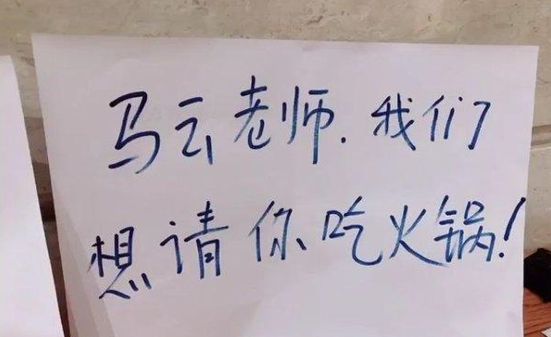 马云老师.我们
想请你吃火锅!